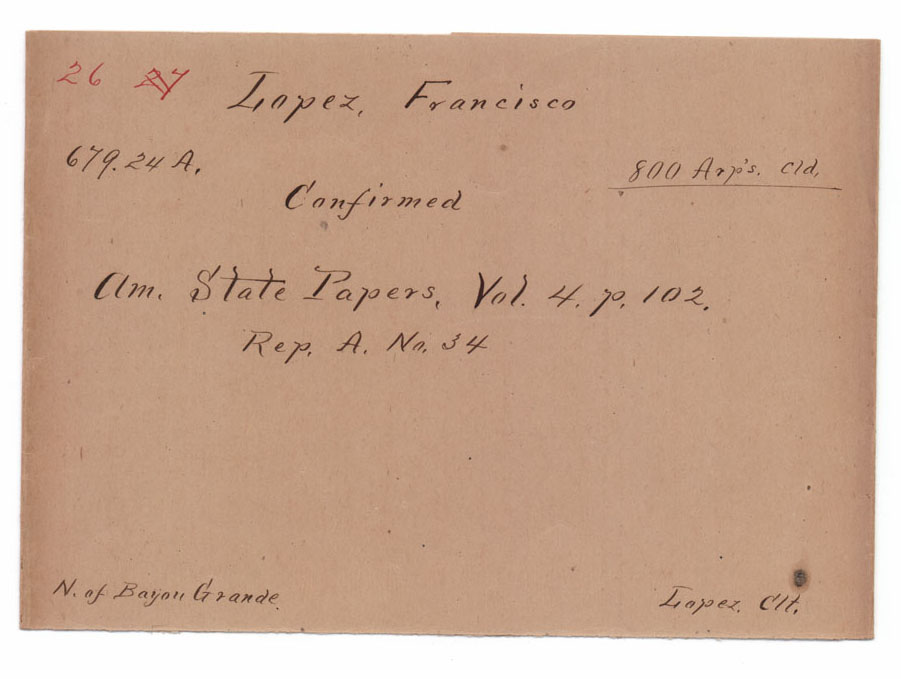 26 27
Lopez, Francisco
679.24 A.
800 Arp's. cld.
Confirmed
Am. State Papers, Vol. 4. p. 102.
Rep. A. No. 34
N. of Bayou Grande
Lopez. Clt.